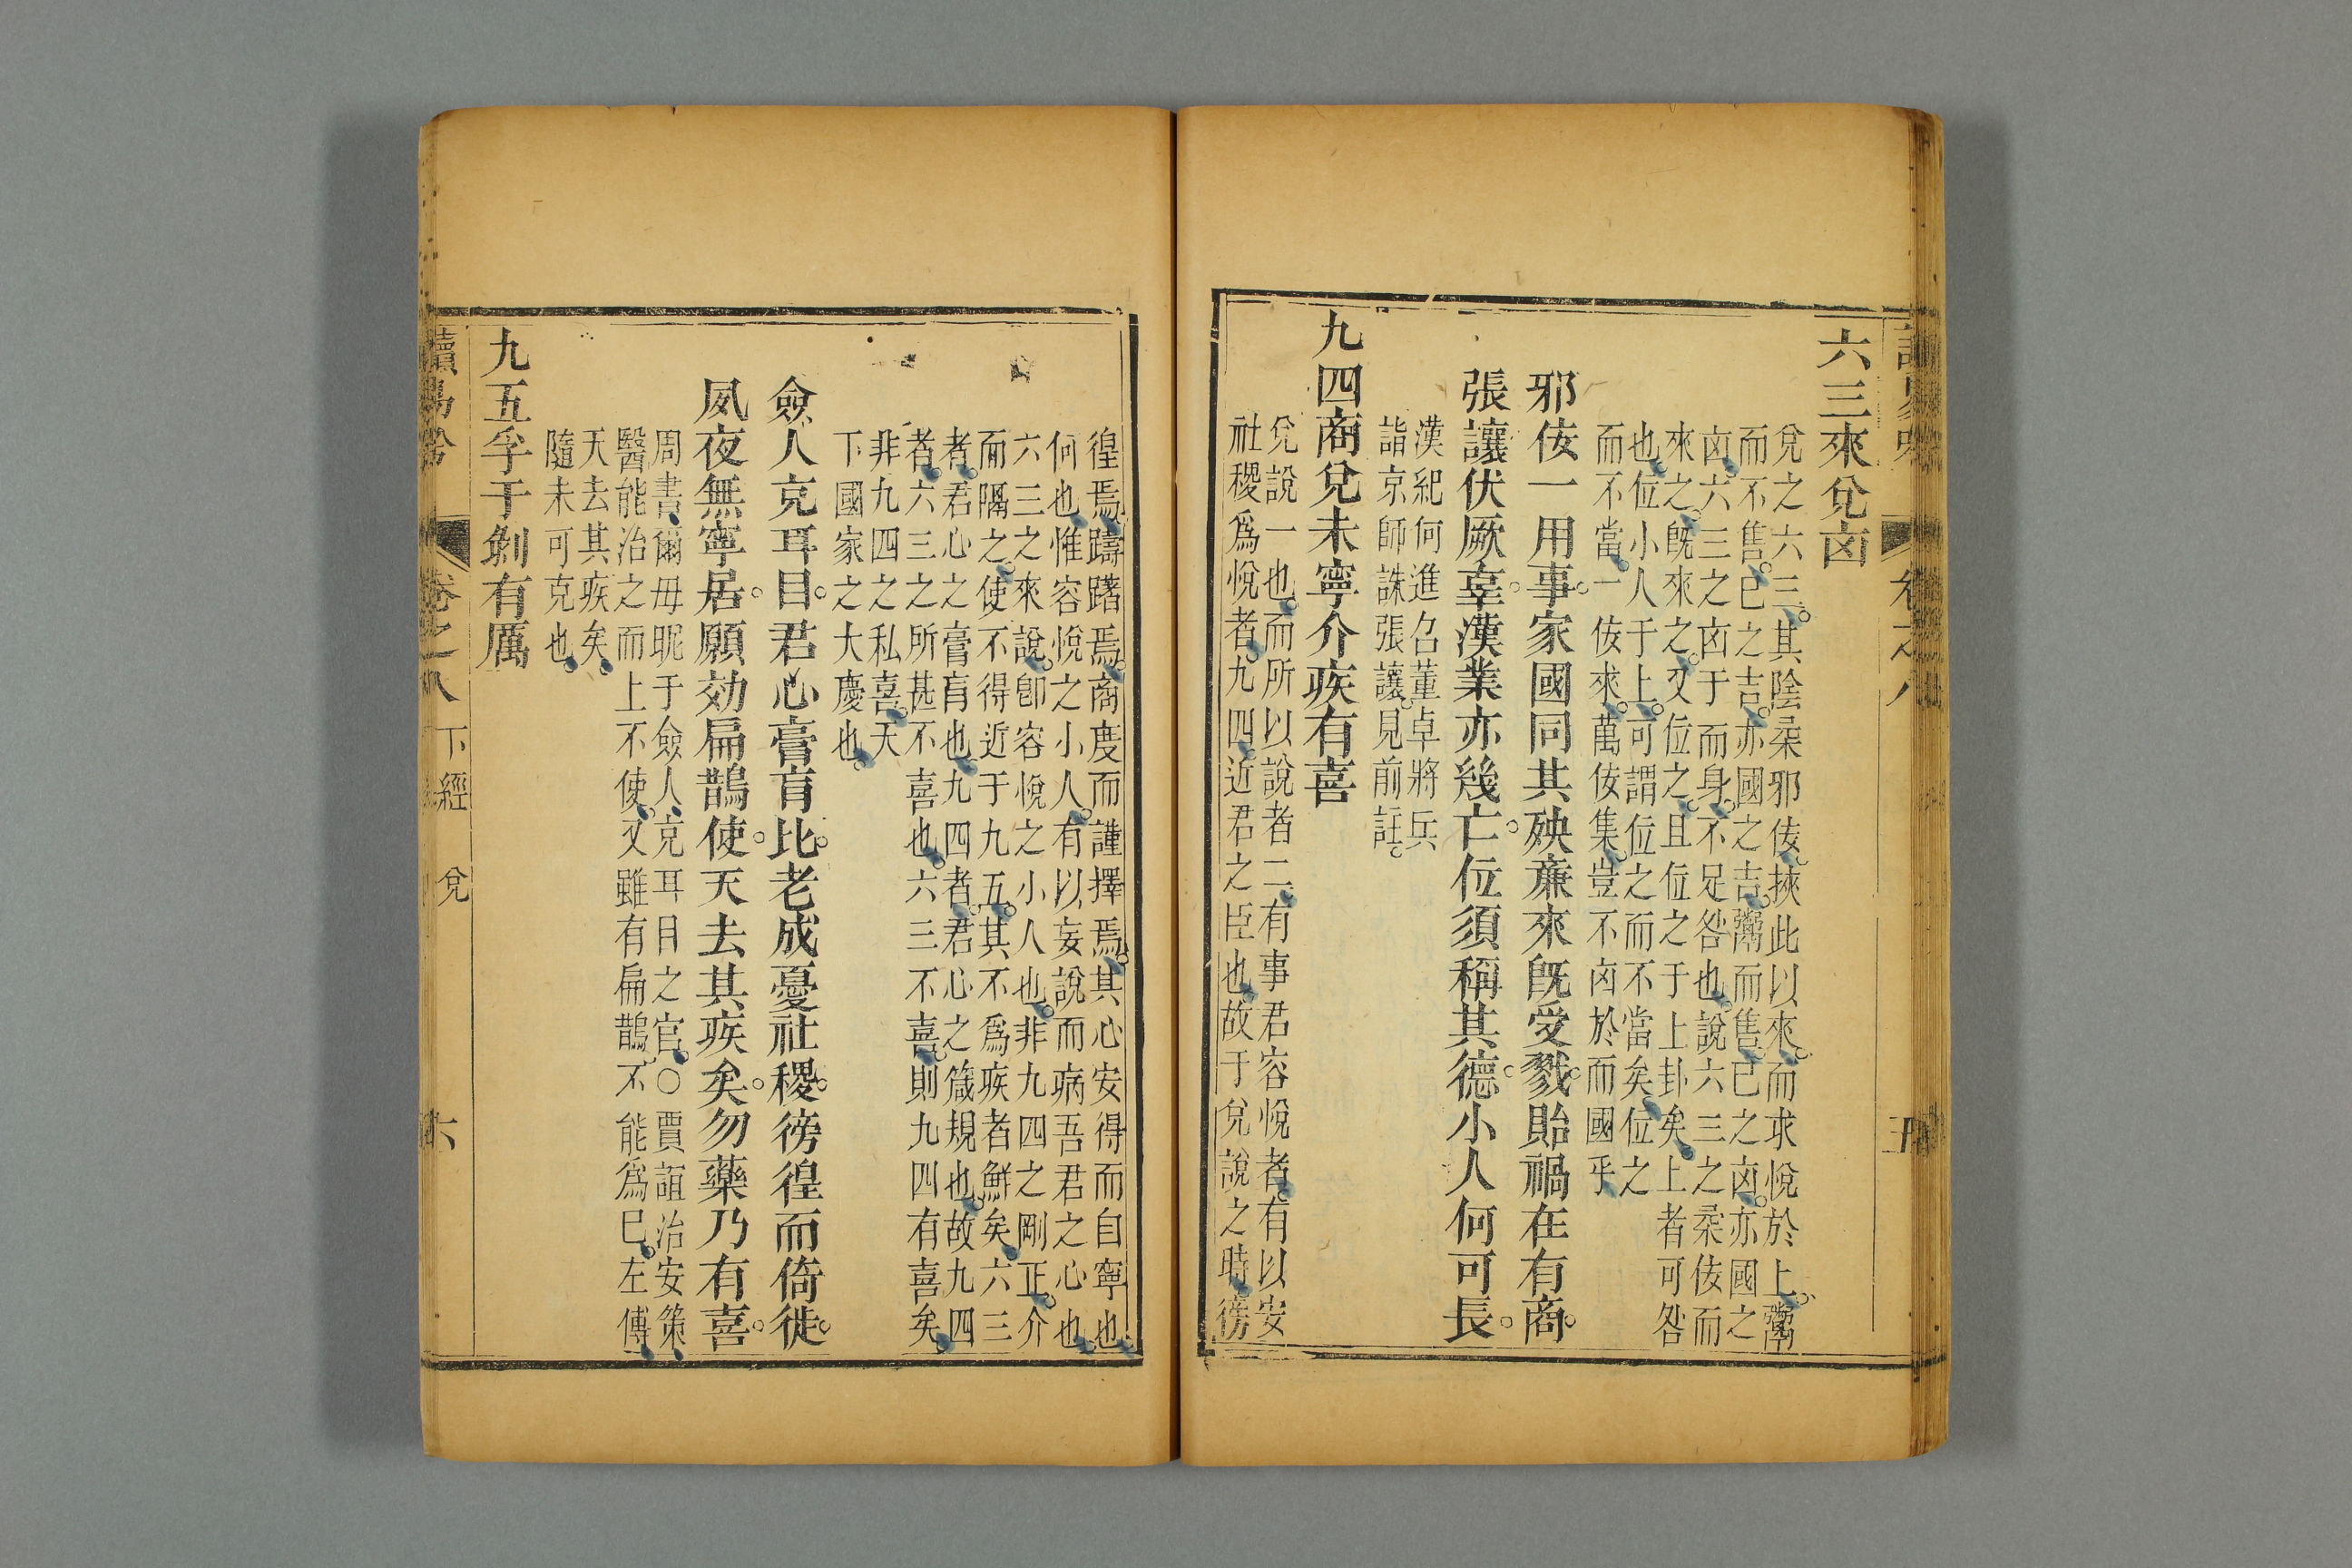 六三來兌㐫
兌之六三其陰柔邪佞挾此以來而求悅於上鬻
而不售已之吉亦國之吉鬻而售已之㐫亦國之
㐫六三之㐫于而身不足咎也說六三之柔佞而
來之旣來之又位之且位之于上卦矣上者可咎
也位小人于上可謂位之而不當矣位之
而不當一佞來萬佞集豈不㐫於而國乎
邪佞一用事家國同其殃亷來旣受戮貽禍在有商
張讓伏厥辜漢業亦幾亡位須稱其德小人何可長
漢紀何進召董卓將兵
詣京師誅張讓見前註
九四商兌未寧介疾有喜
兌說一也而所以說者二有事君容悅者有以安
社稷爲悅者九四近君之臣也故于兌說之時徬
徨焉躊躇焉商度而謹擇焉其心安得而自寧也
何也惟容悅之小人有以妄說而病吾君之心也
六三之來說卽容悅之小人也非九四之剛正介
而隔之使不得近于九五其不爲疾者鮮矣六三
者君心之膏肓也九四者君心之箴規也故九四
者六三之所甚不喜也六三不喜則九四有喜矣
非九四之私喜天
下國家之大慶也
僉人充耳目君心膏肓比老成憂社稷徬徨而倚徙
夙夜無寧居願効扁鵲使天去其疾矣勿藥乃有喜
周書爾毋昵于僉人充耳目之官○賈誼治安策
醫能治之而上不使又雖有扁鵲不能爲巳左傳
天去其疾矣
隨未可克也
九五孚于剝有厲
卷之八 下經 兌 六